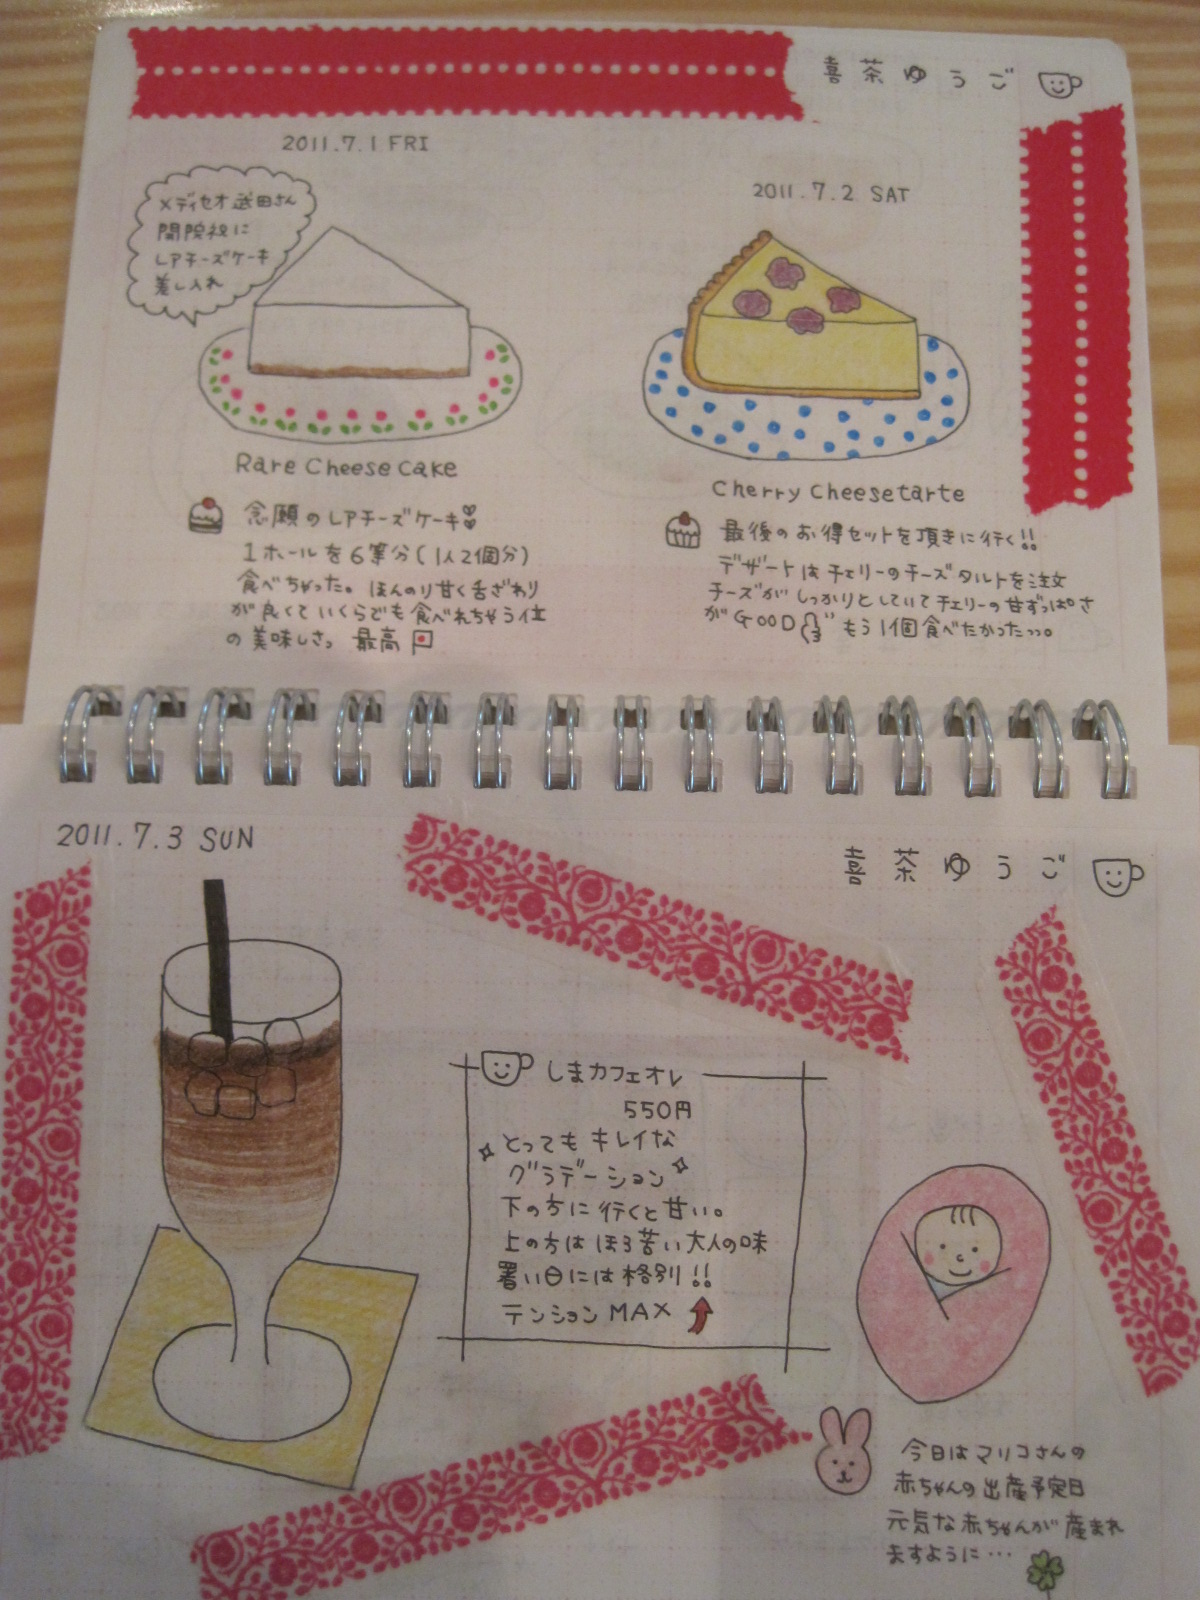 喜茶ゆうご
2011.7.1 FRI
メディセオ武田さん
開院祝に
レアチーズケーキ
差し入れ
Rare Cheese Cake
念願のレアチーズケーキ
1ホールを6等分(1人2個分)
食べちゃった。ほんのり甘く舌ざわり
が良くていくらでも食べれちゃう位
の美味しさっ 最高
2011.7.2 SAT
Cherry Cheesetarte
最後のお得セットを頂きに行く!!
デザートはチェリーのチーズタルトを注文
チーズがしっかりとしていてチェリーの甘ずっぱさ
がGOOD もう1個食べたかったっっ。
2011.7.3 SUN
喜茶ゆうご
しまカフェオレ
550円
とってもキレイな
グラデーション
下の方に行くと甘い。
上の方はほろ苦い大人の味
暑い日には格別!!
テンションMAX
今日はマリコさんの
赤ちゃんの出産予定日
元気な赤ちゃんが産まれ
ますように…